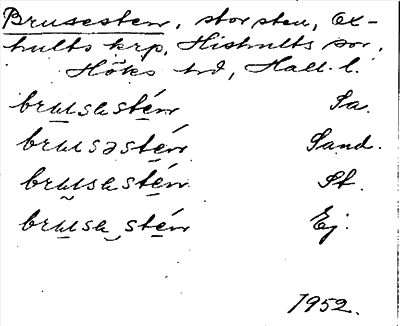 Brusesten, stor sten, Ox-
hults krp, Hishults sn,
Höks hd, Hall. l.
brusestén Sa.
brusəstén Sand.
brusestén St.
bruse stén Ej.
1952.